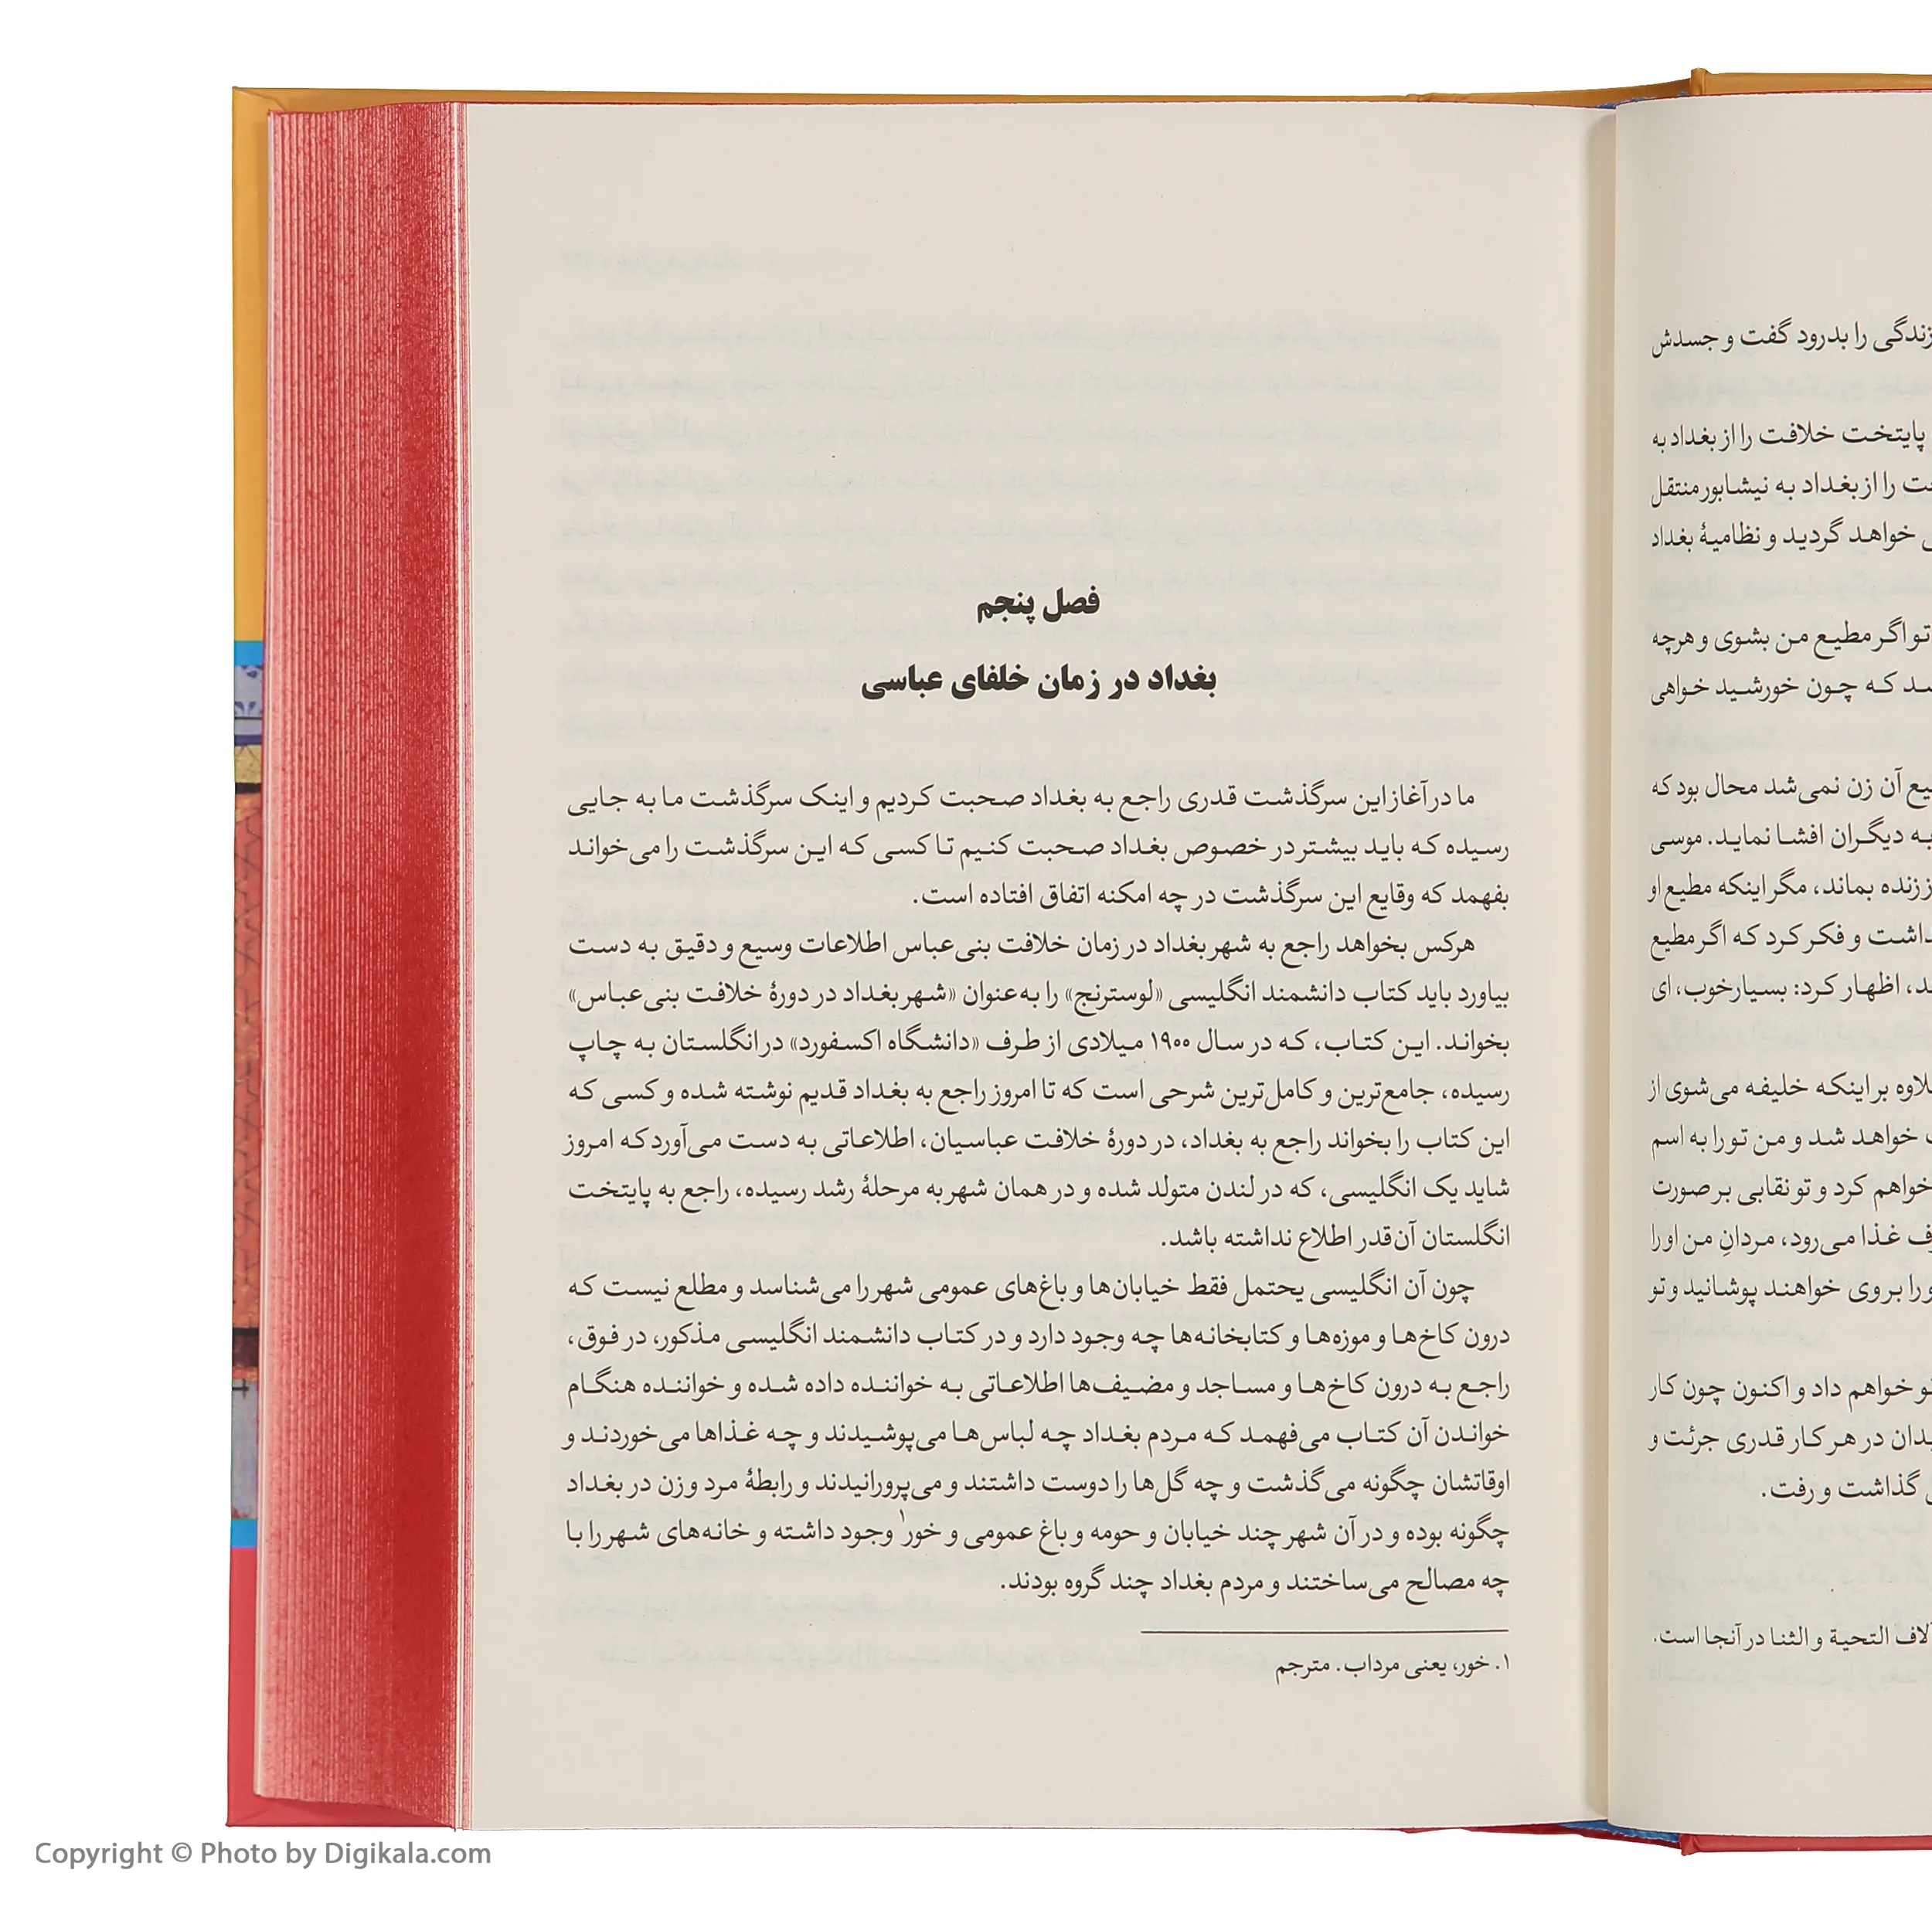 زندگی را بدرود گفت و جسدش
پایتخت خلافت را از بغداد به
را از بغداد به نیشابور منتقل
خواهد گردید و نظامیهٔ بغداد
تو اگر مطیع من بشوی و هرچه
که چون خورشید خواهی
آن زن نمی‌شد محال بود که
به دیگران افشا نماید. موسی
زنده بماند، مگر اینکه مطیع او
داشت و فکر کرد که اگر مطیع
اظهار کرد: بسیار خوب، ای
علاوه بر اینکه خلیفه می‌شوی از
خواهد شد و من تو را به اسم
خواهم کرد و تو نقابی بر صورت
غذا می‌رود، مردانِ من او را
را بر وی خواهند پوشانید و تو
خواهم داد و اکنون چون کار
در هر کار قدری جرئت و
گذاشت و رفت.
آلاف التحیة و الثنا در آنجا است.
فصل پنجم
بغداد در زمان خلفای عباسی
ما در آغاز این سرگذشت قدری راجع به بغداد صحبت کردیم و اینک سرگذشت ما به جایی
رسیده که باید بیشتر در خصوص بغداد صحبت کنیم تا کسی که این سرگذشت را می‌خواند
بفهمد که وقایع این سرگذشت در چه امکنه اتفاق افتاده است.
هرکس بخواهد راجع به شهر بغداد در زمان خلافت بنی‌عباس اطلاعات وسیع و دقیق به دست
بیاورد باید کتاب دانشمند انگلیسی «لوسترنج» را به‌عنوان «شهر بغداد در دورهٔ خلافت بنی‌عباس»
بخواند. این کتاب، که در سال ۱۹۰۰ میلادی از طرف «دانشگاه اکسفورد» در انگلستان به چاپ
رسیده، جامع‌ترین و کامل‌ترین شرحی است که تا امروز راجع به بغداد قدیم نوشته شده و کسی که
این کتاب را بخواند راجع به بغداد، در دورهٔ خلافت عباسیان، اطلاعاتی به دست می‌آورد که امروز
شاید یک انگلیسی، که در لندن متولد شده و در همان شهر به مرحلهٔ رشد رسیده، راجع به پایتخت
انگلستان آن‌قدر اطلاع نداشته باشد.
چون آن انگلیسی یحتمل فقط خیابان‌ها و باغ‌های عمومی شهر را می‌شناسد و مطلع نیست که
درون کاخ‌ها و موزه‌ها و کتابخانه‌ها چه وجود دارد و در کتاب دانشمند انگلیسی مذکور، در فوق،
راجع به درون کاخ‌ها و مساجد و مضیف‌ها اطلاعاتی به خواننده داده شده و خواننده هنگام
خواندن آن کتاب می‌فهمد که مردم بغداد چه لباس‌ها می‌پوشیدند و چه غذاها می‌خوردند و
اوقاتشان چگونه می‌گذشت و چه گل‌ها را دوست داشتند و می‌پرورانیدند و رابطهٔ مرد و زن در بغداد
چگونه بوده و در آن شهر چند خیابان و حومه و باغ عمومی و خور۱ وجود داشته و خانه‌های شهر را با
چه مصالح می‌ساختند و مردم بغداد چند گروه بودند.
۱. خور، یعنی مرداب. مترجم
Copyright © Photo by Digikala.com